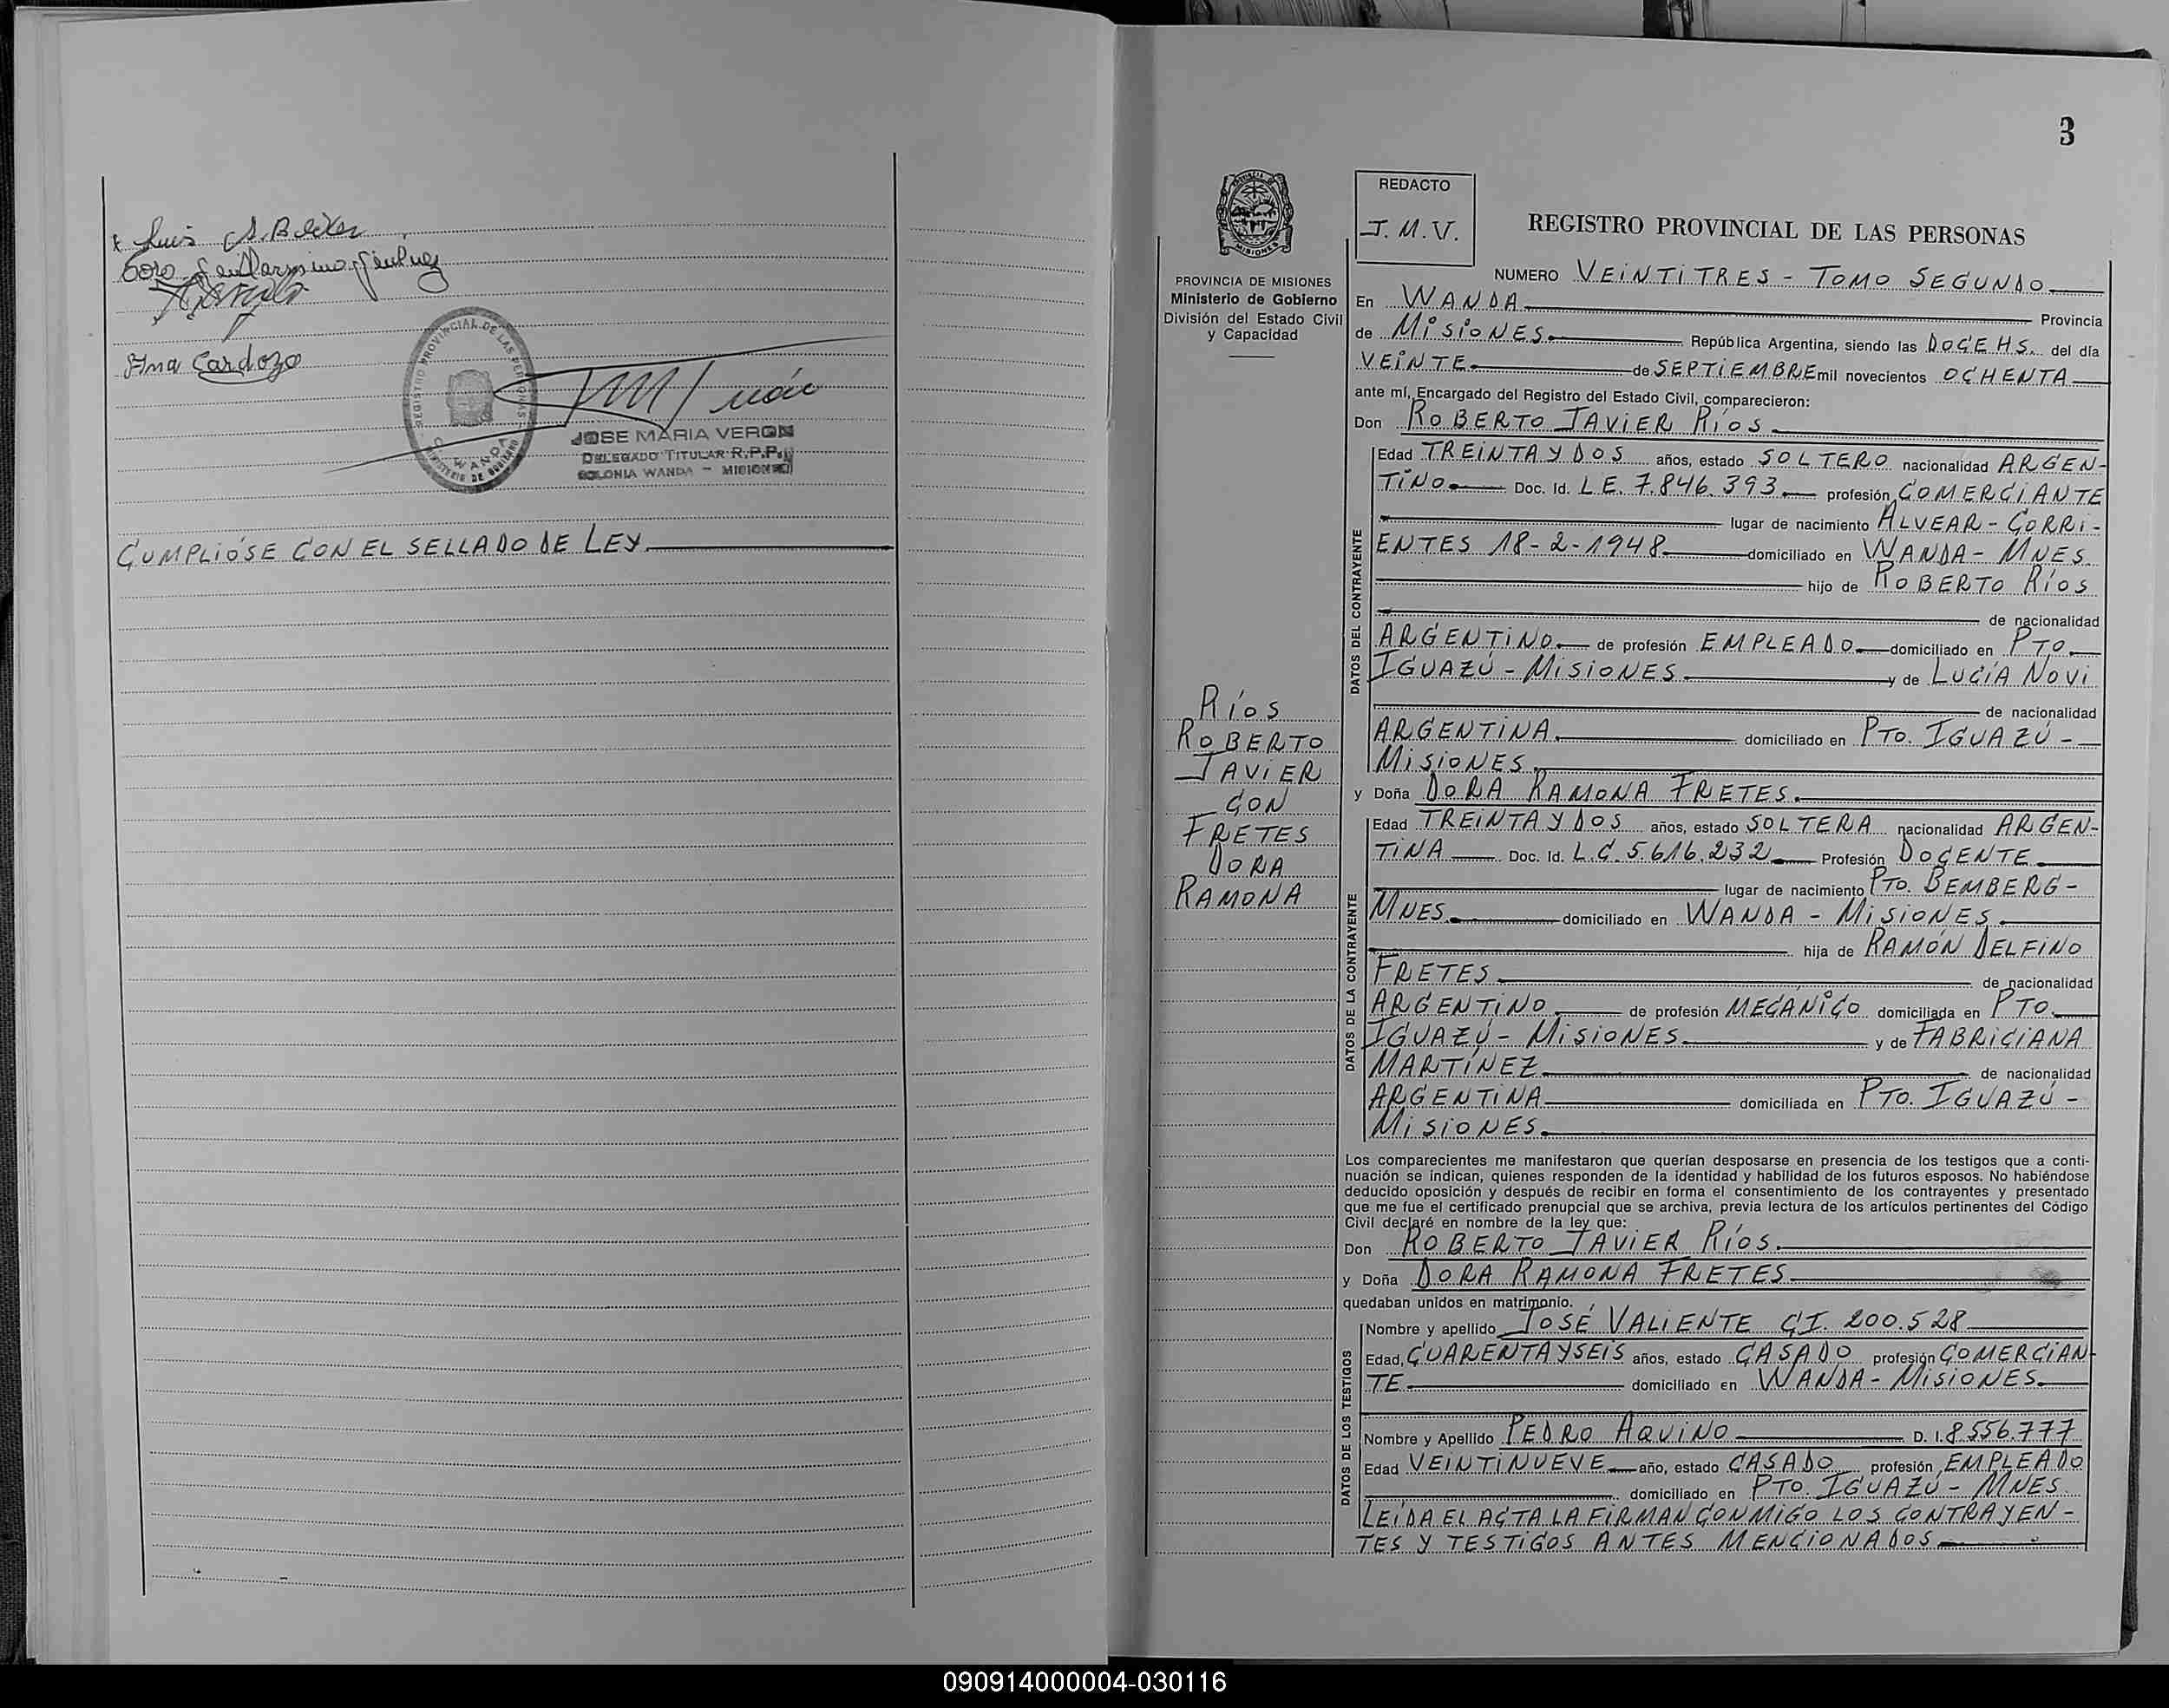 Luis A. Beiker
Ana Cardozo
REGISTRO PROVINCIAL DE LAS PERSONAS
WANDA
MINISTERIO DE GOBIERNO
JOSE MARIA VERON
DELEGADO TITULAR R.P.P.
COLONIA WANDA - MISIONES
CUMPLIÓSE CON EL SELLADO DE LEY.
3
MISIONES
PROVINCIA DE MISIONES
Ministerio de Gobierno
División del Estado Civil
y Capacidad
RÍOS
ROBERTO
JAVIER
CON
FRETES
DORA
RAMONA
REDACTO
J.M.V.
REGISTRO PROVINCIAL DE LAS PERSONAS
NUMERO VEINTITRES - TOMO SEGUNDO
En WANDA Provincia
de MISIONES República Argentina, siendo las DOCE HS. del día
VEINTE de SEPTIEMBRE mil novecientos OCHENTA
ante mí, Encargado del Registro del Estado Civil, comparecieron:
Don ROBERTO JAVIER RÍOS
DATOS DEL CONTRAYENTE
Edad TREINTA Y DOS años, estado SOLTERO nacionalidad ARGEN-
TINO Doc. Id. L.E. 7.846.393 profesión COMERCIANTE
lugar de nacimiento ALVEAR - CORRI-
ENTES 18-2-1948 domiciliado en WANDA - MNES.
hijo de ROBERTO RÍOS
de nacionalidad
ARGENTINO de profesión EMPLEADO domiciliado en PTO
IGUAZÚ - MISIONES y de LUCÍA NOVI
de nacionalidad
ARGENTINA domiciliado en PTO. IGUAZÚ -
MISIONES
y Doña DORA RAMONA FRETES.
DATOS DE LA CONTRAYENTE
Edad TREINTA Y DOS años, estado SOLTERA nacionalidad ARGEN-
TINA Doc. Id. L.C. 5.616.232 Profesión DOCENTE
lugar de nacimiento PTO. BEMBERG -
MNES. domiciliado en WANDA - MISIONES
hija de RAMÓN DELFINO
FRETES de nacionalidad
ARGENTINO de profesión MECÁNICO domiciliada en PTO
IGUAZÚ - MISIONES y de FABRICIANA
MARTÍNEZ de nacionalidad
ARGENTINA domiciliada en PTO. IGUAZÚ -
MISIONES.
Los comparecientes me manifestaron que querían desposarse en presencia de los testigos que a conti-
nuación se indican, quienes responden de la identidad y habilidad de los futuros esposos. No habiéndose
deducido oposición y después de recibir en forma el consentimiento de los contrayentes y presentado
que me fue el certificado prenupcial que se archiva, previa lectura de los artículos pertinentes del Código
Civil declaré en nombre de la ley que:
Don ROBERTO JAVIER RÍOS.
y Doña DORA RAMONA FRETES
quedaban unidos en matrimonio.
DATOS DE LOS TESTIGOS
Nombre y apellido JOSÉ VALIENTE C.I. 200.528
Edad, CUARENTA Y SEIS años, estado CASADO profesión COMERCIAN-
TE domiciliado en WANDA - MISIONES
Nombre y Apellido PEDRO AQUINO D. I. 8.556.777
Edad VEINTINUEVE año, estado CASADO profesión EMPLEADO
domiciliado en PTO. IGUAZÚ - MNES
LEÍDA EL ACTA LA FIRMAN CONMIGO LOS CONTRAYEN-
TES Y TESTIGOS ANTES MENCIONADOS
090914000004-030116